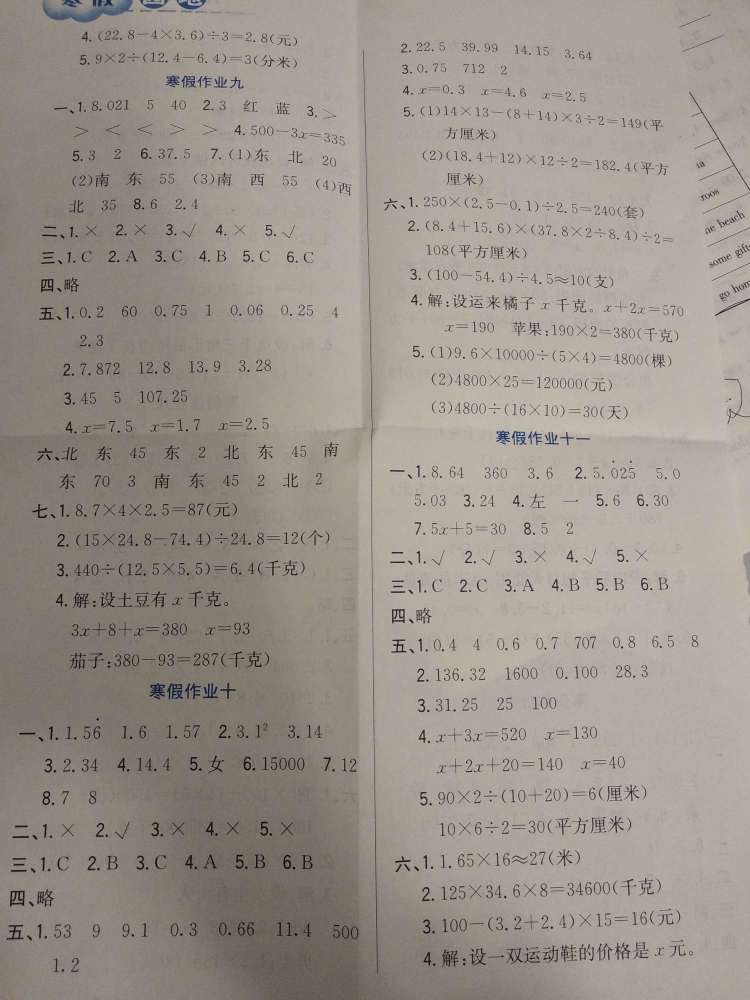 寒假
4.(22.8-4×3.6)÷3=2.8(元)
5.9×2÷(12.4-6.4)=3(分米)
寒假作业九
一、1.8.021 5 40 2.3 红 蓝 3.>
> < < > > 4.500-3x=335
5.3 2 6.37.5 7.(1)东 北 20
(2)南 东 55 (3)南 西 55 (4)西
北 35 8.6 2.4
二、1.× 2.× 3.√ 4.× 5.√
三、1.C 2.A 3.C 4.B 5.C 6.C
四、略
五、1.0.2 60 0.75 1 0.06 0.25 4
2.3
2.7.872 12.8 13.9 3.28
3.45 5 107.25
4.x=7.5 x=1.7 x=2.5
六、北 东 45 东 2 北 东 45 南
东 70 3 南 东 45 2 北 2
七、1.8.7×4×2.5=87(元)
2.(15×24.8-74.4)÷24.8=12(个)
3.440÷(12.5×5.5)=6.4(千克)
4.解:设土豆有x千克。
3x+8+x=380 x=93
茄子:380-93=287(千克)
寒假作业十
一、1.1.56̇ 1.6 1.57 2.3.1² 3.14
3.2.34 4.14.4 5.女 6.15000 7.12
8.7 8
二、1.× 2.√ 3.× 4.× 5.×
三、1.C 2.B 3.C 4.A 5.B 6.B
四、略
五、1.53 9 9.1 0.3 0.66 11.4 500
1.2
2.22.5 39.99 14.15 3.64
3.0.75 712 2
4.x=0.3 x=4.6 x=2.5
5.(1)14×13-(8+14)×3÷2=149(平
方厘米)
(2)(18.4+12)×12÷2=182.4(平方
厘米)
六、1.250×(2.5-0.1)÷2.5=240(套)
2.(8.4+15.6)×(37.8×2÷8.4)÷2=
108(平方厘米)
3.(100-54.4)÷4.5≈10(支)
4.解:设运来橘子x千克。x+2x=570
x=190 苹果:190×2=380(千克)
5.(1)9.6×10000÷(5×4)=4800(棵)
(2)4800×25=120000(元)
(3)4800÷(16×10)=30(天)
寒假作业十一
一、1.8.64 360 3.6 2.5.0̇25̇ 5.0
5.03 3.24 4.左 一 5.6 6.30
7.5x+5=30 8.5 2
二、1.√ 2.√ 3.× 4.√ 5.×
三、1.C 2.C 3.A 4.B 5.B 6.B
四、略
五、1.0.4 4 0.6 0.7 707 0.8 6.5 8
2.136.32 1600 0.100 28.3
3.31.25 25 100
4.x+3x=520 x=130
x+2x+20=140 x=40
5.90×2÷(10+20)=6(厘米)
10×6÷2=30(平方厘米)
六、1.1.65×16≈27(米)
2.125×34.6×8=34600(千克)
3.100-(3.2+2.4)×15=16(元)
4.解:设一双运动鞋的价格是x元。
roos
ne beach
some gifts
go hom